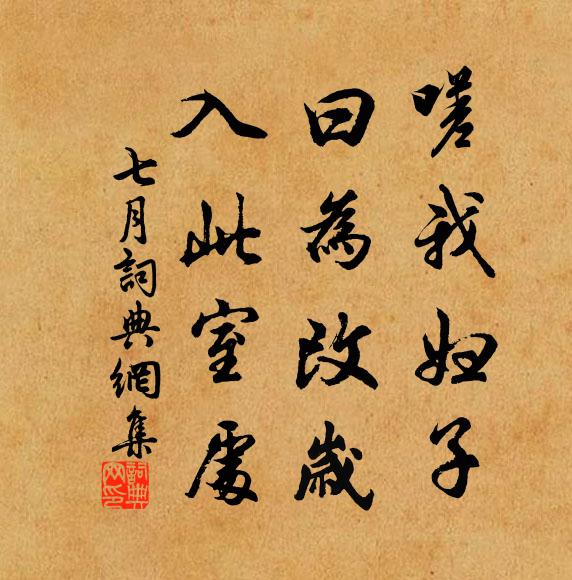 嗟我婦子
曰為改歲
入此室處
七月詞典網集
詞典網印